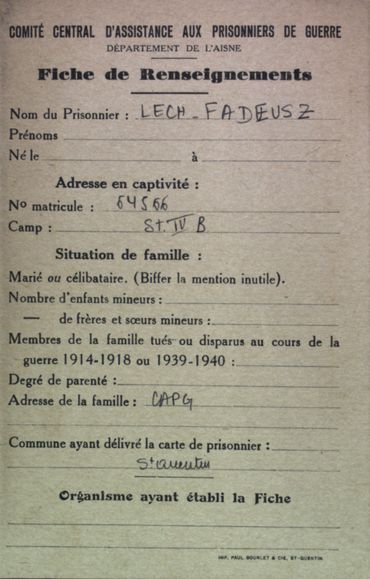 COMITÉ CENTRAL D'ASSISTANCE AUX PRISONNIERS DE GUERRE
DÉPARTEMENT DE L'AISNE
Fiche de Renseignements
Nom du Prisonnier : LECH - FADEUSZ
Prénoms
Né le à
Adresse en captivité :
No matricule : 64566
Camp : St. IV B
Situation de famille :
Marié ou célibataire. (Biffer la mention inutile).
Nombre d'enfants mineurs :
— de frères et sœurs mineurs :
Membres de la famille tués ou disparus au cours de la
guerre 1914-1918 ou 1939-1940 :
Degré de parenté :
Adresse de la famille : CAPG
Commune ayant délivré la carte de prisonnier :
St Quentin
Organisme ayant établi la Fiche
IMP. PAUL BOURLET & CIE, ST-QUENTIN